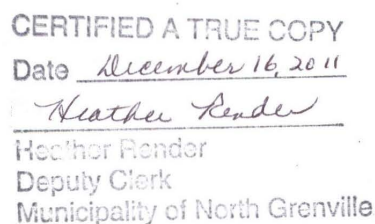 CERTIFIED A TRUE COPY
Date December 16, 2011
Heather Render
Heather Render
Deputy Clerk
Municipality of North Grenville